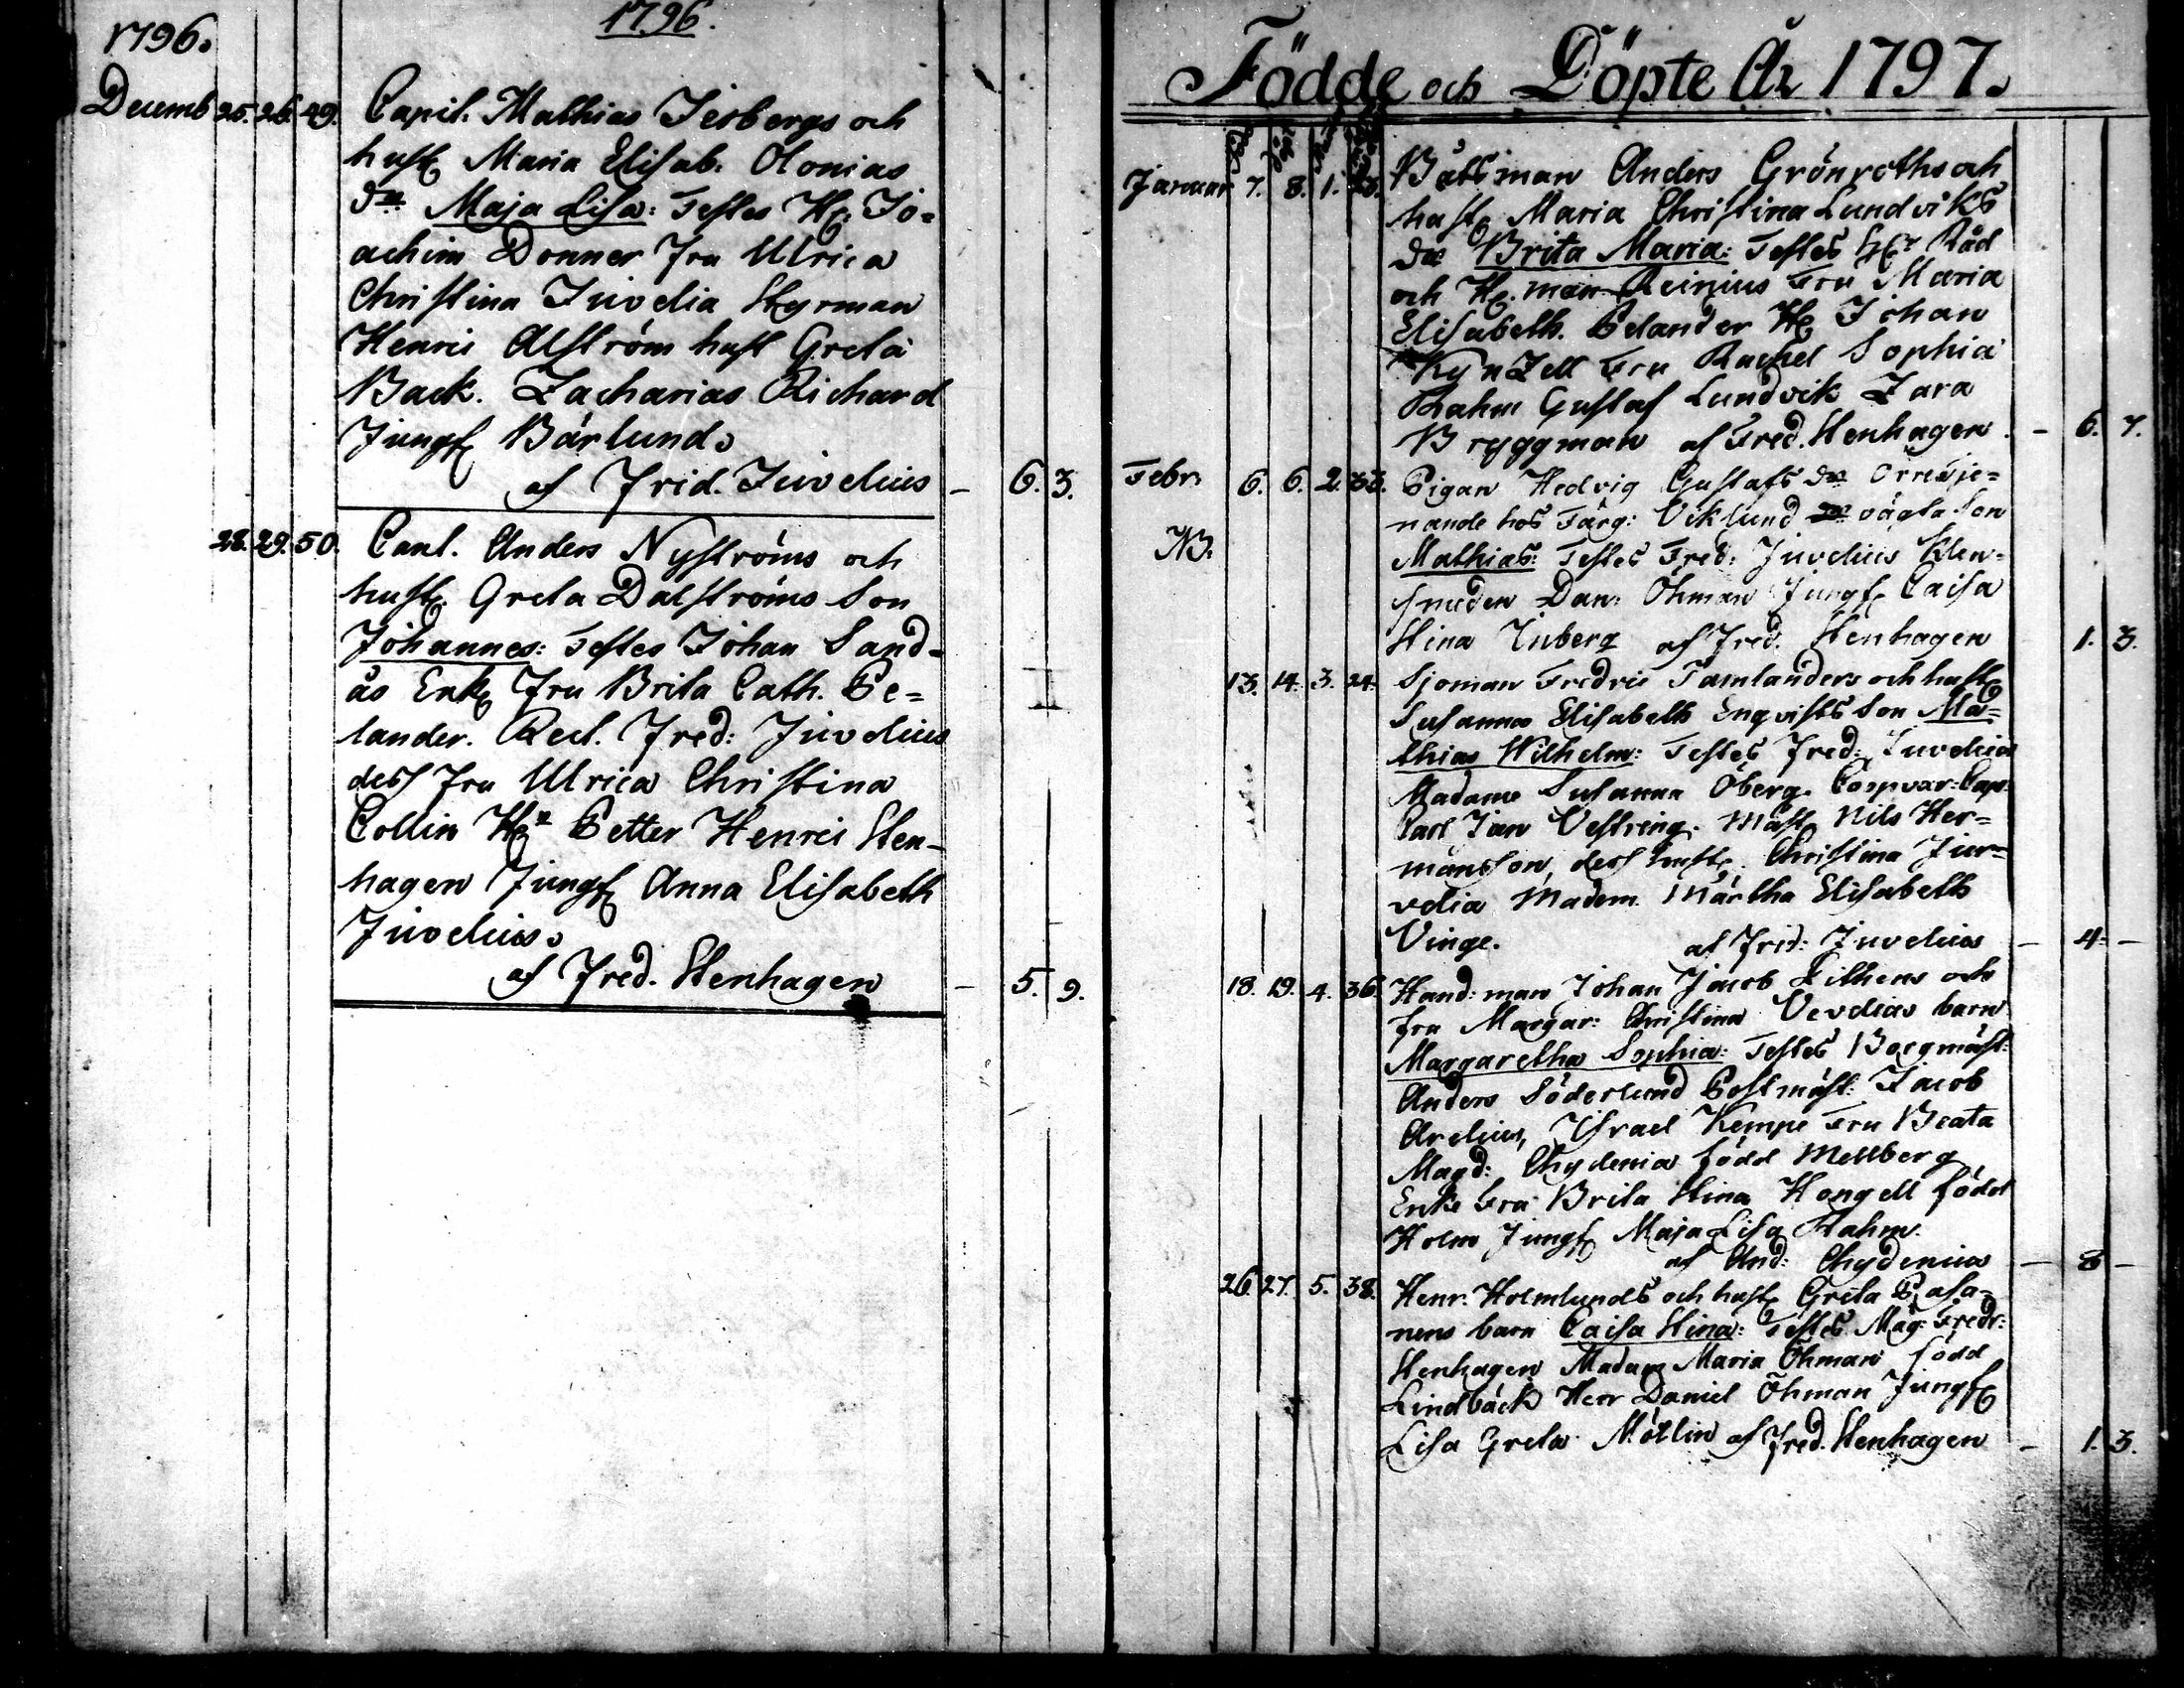 1796.
1796.
Decemb 25. 26. 49. Capit. Mathias Jesbergs och
hust Maria Elisab. Olonias
dr Maja Lisa: Testes Hr. Jo=
achim Donner Fru Ulrica
Christina Juvelia Styrman
Henric Alström hust Greta
Back. Zacharias Richard
Jungf Bärlund.
af Frid. Juvelius — 6. 3.
28. 29. 50. Carl. Anders Nyströms och
hust. Greta Dalströms Son
Johannes: Testes Johan Sand=
ås Enk Fru Brita Cath. Pe=
lander. Rect. Fred: Juvelius
dess Fru Ulrica Christina
Collin Hr Petter Henric Sten-
hagen Jungf Anna Elisabeth
Juvelius.
af Fred. Stenhagen — 5. 9.
Födde och Döpte År 1797.
Januar 7. 8. 1. Båtsman Anders Grönroths och
hust Maria Christina Lundviks
dr Brita Maria: Testes Hr Råd
och H. man Reinius Fru Maria
Elisabeth. Pelander Hr Johan
Kynzell Fru Rachel Sophia
Rahm Gustaf Lundvik Zara
Bryggman af Fred. Stenhagen. — 6. 7.
Febr. 6. 6. 2. 33. Pigan Hedvig Gustafs dr Orres je=
nande hos Färg: Viklund oägta Son
NB. Mathias: Testes Fred: Juvelius Klen=
smeden Dan: Öhman Jungf Caisa
Stina Inberg af Fred. Stenhagen 1. 3.
13. 14. 3. 24. Sjöman Fredric Tamlanders och hust
Susanna Elisabeth Enqvists Son Ma=
thias Wilhelm: Testes Fred: Juvelius
Madame Susanna Öberg. Coopvar: Cap:
Carl Jan Vestring. Mäst Nils Her=
mansson, dess hust. Christina Juv=
velia Madem. Märtha Elisabeth
Vinge. af Frid: Juvelius — 4. —
18. 19. 4. 36. Hand: man Johan Jacob Lithens och
fru Margar: Christina Vevelias barn
Margaretha Sophia: Testes Borgmäst:
Anders Söderlund Postmäst: Jacob
Arelius, Israel Kempe Fru Beata
Magd: Chydenia född Mellberg
Enke Fru Brita Stina Hongell född
Holm Jungf Maja Lisa Rahm.
af And: Chydenius — 8 —
26. 27. 5. 38. Henr. Holmlunds och hust Greta Pasa=
nens barn Caisa Stina: Testes Mag: Fredr:
Stenhagen Madam Maria Öhman född
Lindbäck Herr Daniel Öhman Jungf
Lisa Greta Möllin af Fred. Stenhagen — 1. 3.